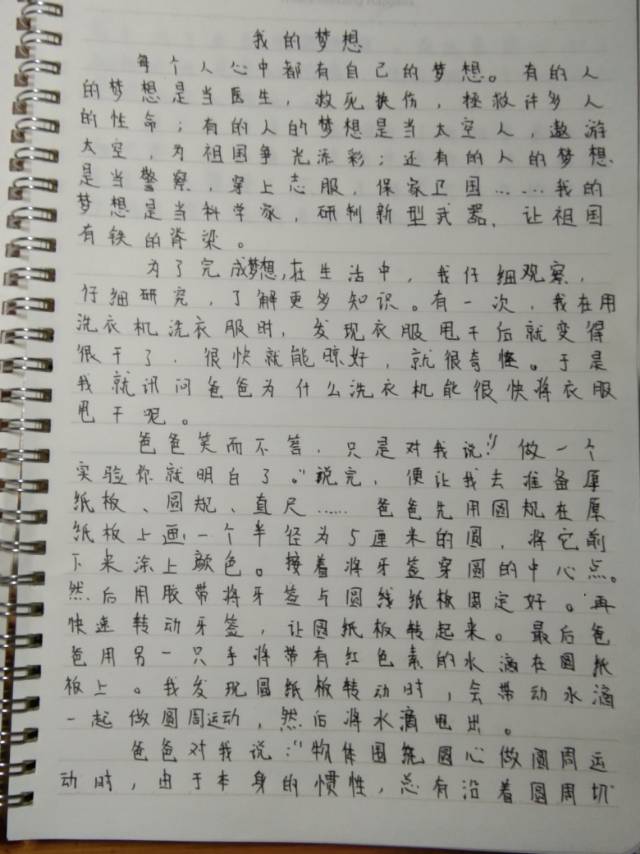 我的梦想
每个人心中都有自己的梦想。有的人
的梦想是当医生，救死扶伤，拯救许多人
的性命；有的人的梦想是当太空人，遨游
太空，为祖国争光添彩；还有的人的梦想
是当警察，穿上志服，保家卫国……我的
梦想是当科学家，研制新型武器，让祖国
有铁的脊梁。
为了完成梦想，在生活中，我仔细观察，
仔细研究，了解更多知识。有一次，我在用
洗衣机洗衣服时，发现衣服甩干后就变得
很干了，很快就能晾好，就很奇怪。于是
我就讯问爸爸为什么洗衣机能很快将衣服
甩干呢。
爸爸笑而不答，只是对我说：“做一个
实验你就明白了。”说完，便让我去准备厚
纸板、圆规、直尺……爸爸先用圆规在厚
纸板上画一个半径为5厘米的圆，将它剪
下来涂上颜色。接着将牙签穿圆的中心点。
然后用胶带将牙签与圆纸板固定好。再
快速转动牙签，让圆纸板转起来。最后爸
爸用另一只手将带有红色素的水滴在圆纸
板上。我发现圆纸板转动时，会带动水滴
一起做圆周运动，然后将水滴甩出。
爸爸对我说：“物体围绕圆心做圆周运
动时，由于本身的惯性，总有沿着圆周切